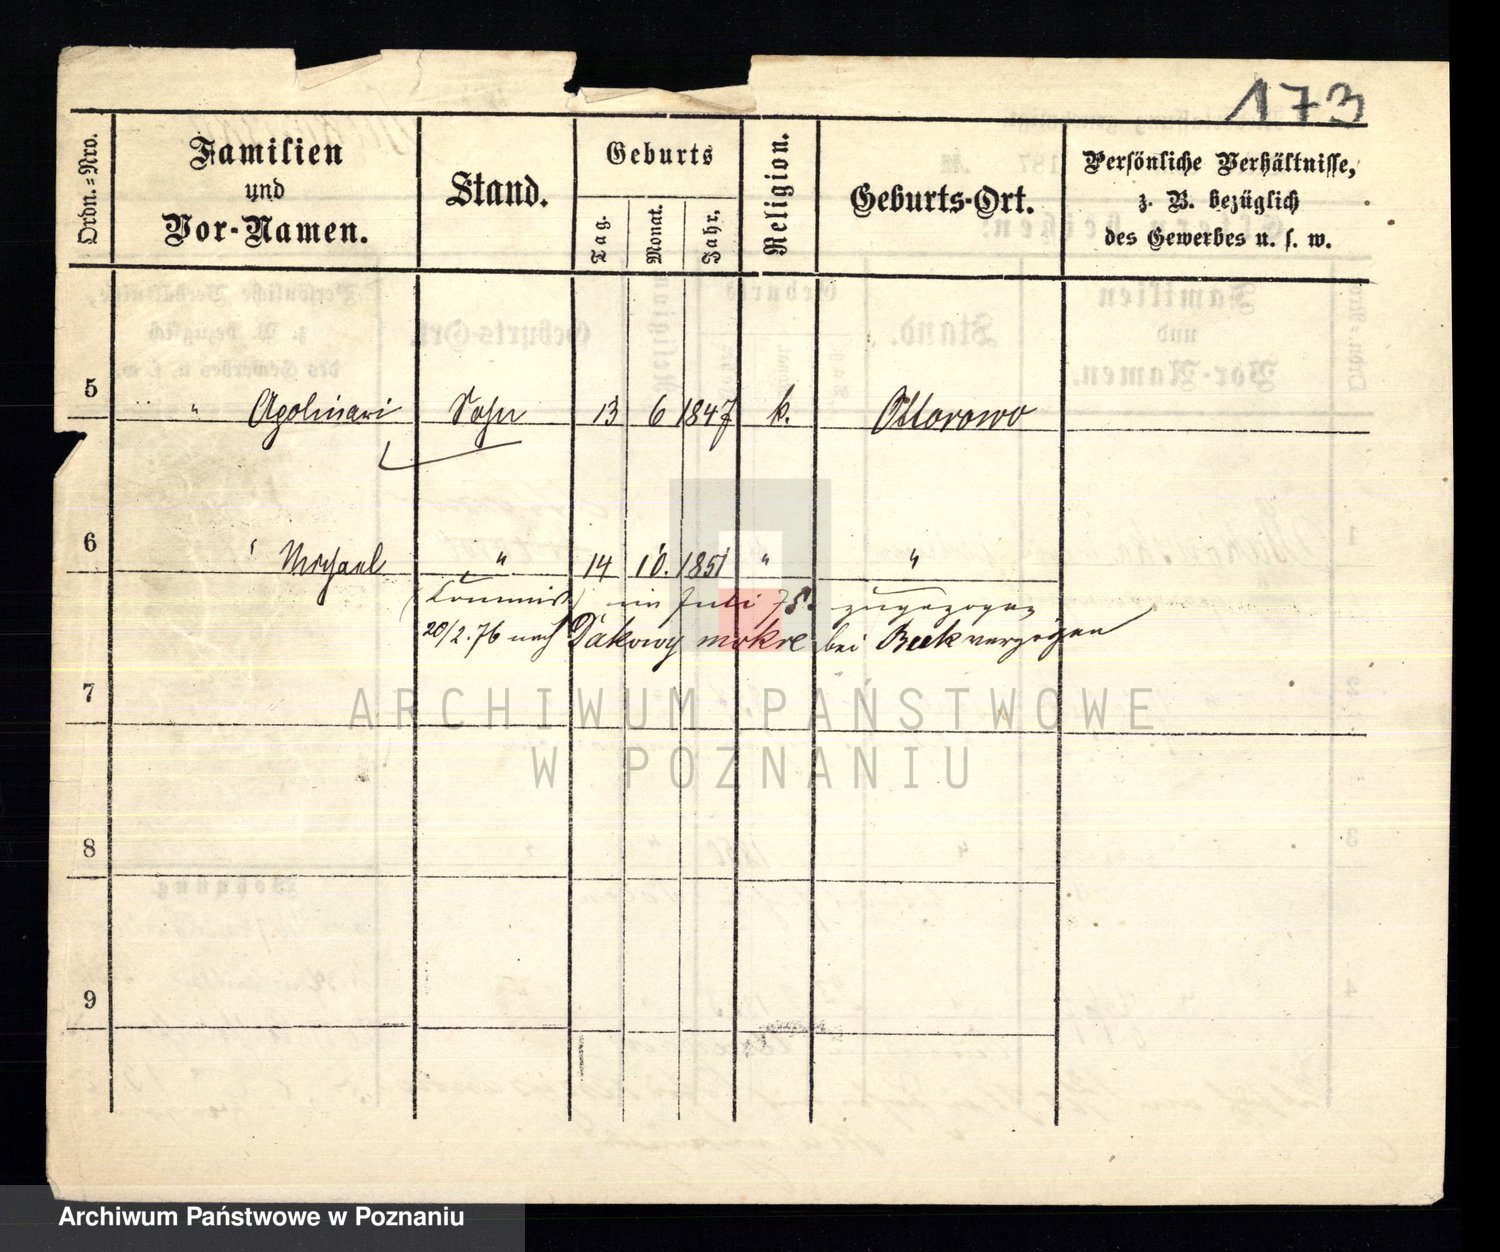 173
Ordn.=Nro.
Familien
und
Vor-Namen.
Stand.
Geburts
Tag.
Monat.
Jahr.
Religion.
Geburts-Ort.
Persönliche Verhältnisse,
z. B. bezüglich
des Gewerbes u. s. w.
5 " Apolinari Sohn 13 6 1847 k. Ottorowo
6 " Michael " 14 10. 1851 " "
(Commis) im Juli 75. zugezogen
20/2.76 nach Dakowy mokre bei Buk verzogen
7
ARCHIWUM PAŃSTWOWE
W POZNANIU
8
9
Archiwum Państwowe w Poznaniu